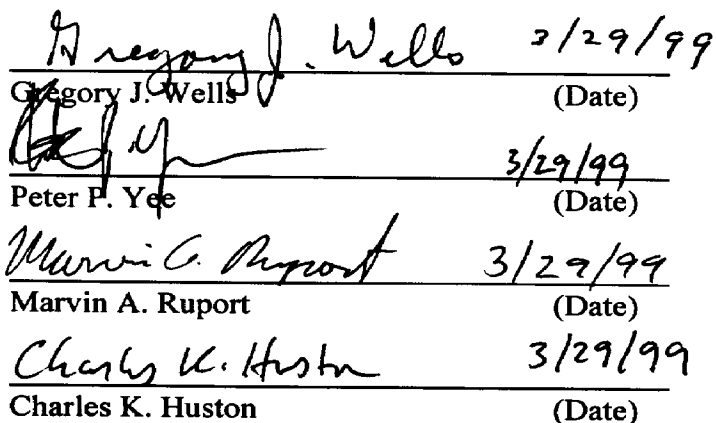 Gregory J. Wells 3/29/99
Gregory J. Wells (Date)
3/29/99
Peter P. Yee (Date)
Marvin A. Ruport 3/29/99
Marvin A. Ruport (Date)
Charles K. Huston 3/29/99
Charles K. Huston (Date)